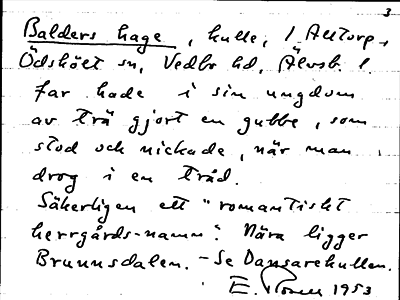 3
Balders hage, kulle, i Alltorp,
Ödskölt sn, Vedbo hd, Älvsb. l.
Far hade i sin ungdom
av trä gjort en gubbe, som
stod och nickade, när man
drog i en tråd.
Säkerligen ett "romantiskt
herrgårds-namn". Nära ligger
Brunnsdalen. – Se Dansarekullen.
E. 1953